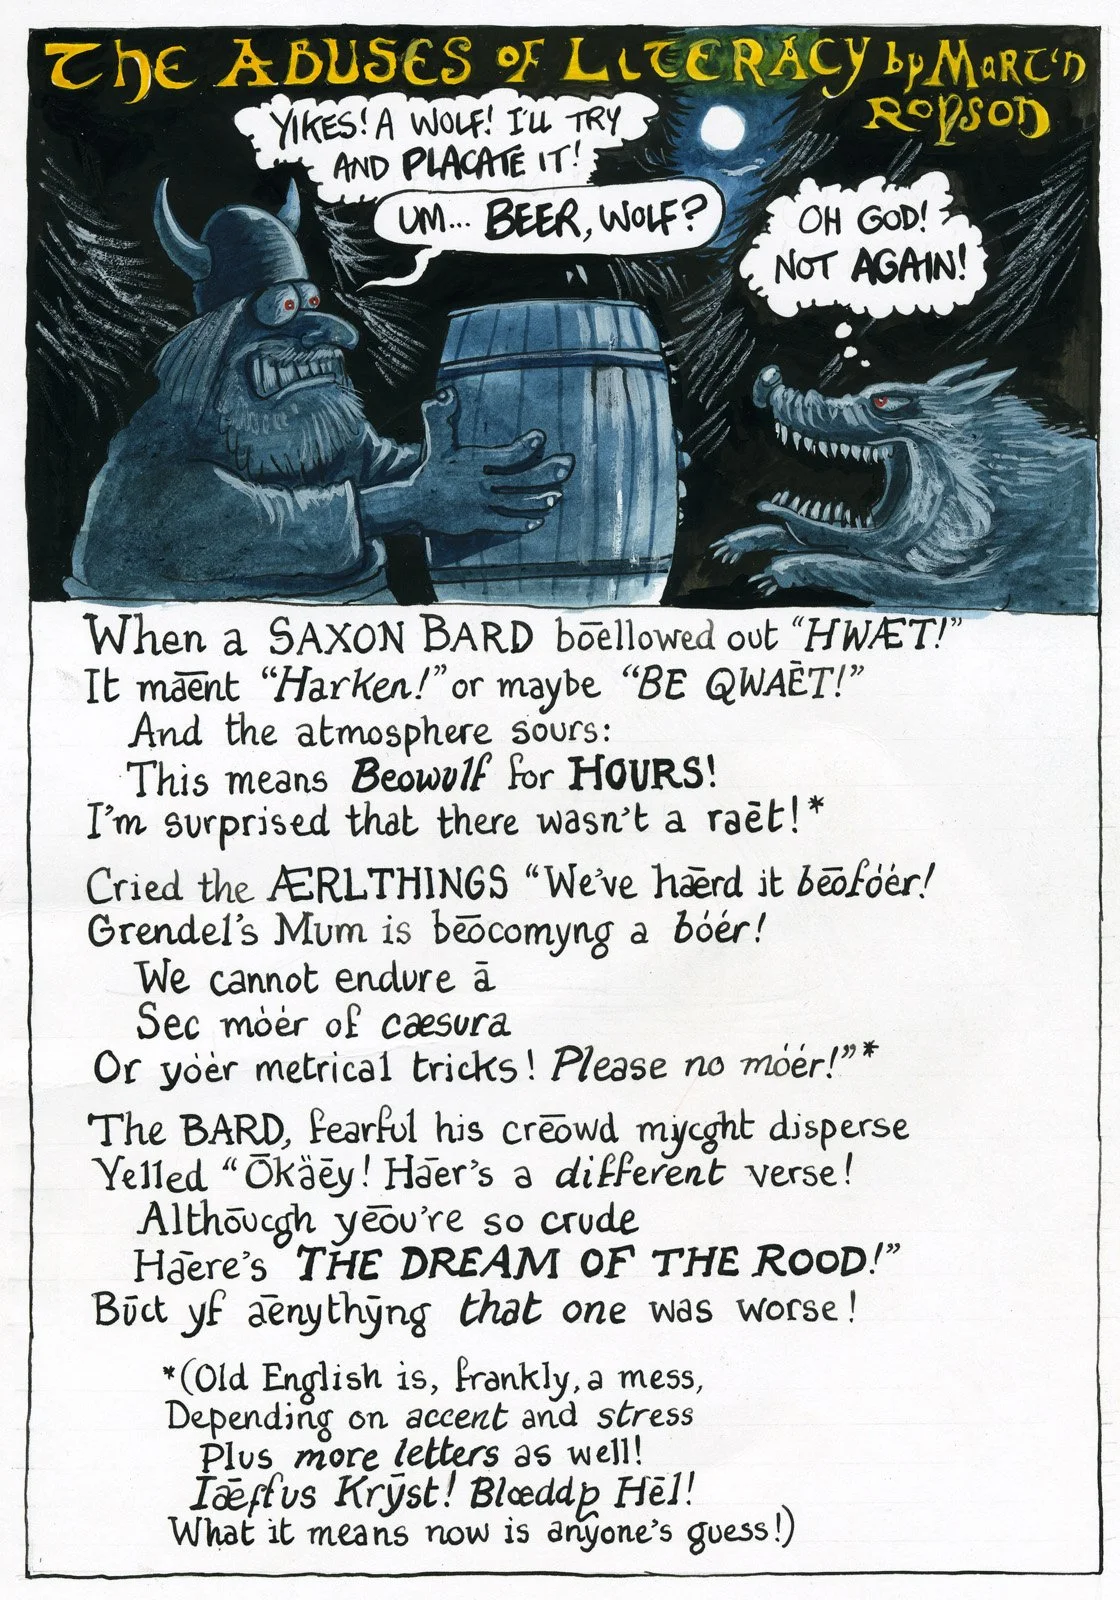 THE ABUSES OF LITERACY by MARTIN
ROWSON
YIKES! A WOLF! I'LL TRY
AND PLACATE IT!
UM... BEER, WOLF?
OH GOD!
NOT AGAIN!
When a SAXON BARD bōellowed out “HWÆT!”
It māēnt “Harken!” or maybe “BE QWAĒT!”
And the atmosphere sours:
This means Beowulf for HOURS!
I'm surprised that there wasn't a raēt!*
Cried the ÆRLTHINGS “We've hǣrd it bēōfóér!
Grendel's Mum is bēōcomyng a bóér!
We cannot endure ā
Sec móér of cæsura
Or yóér metrical tricks! Please no móér!”*
The BARD, fearful his crēōwd mycght disperse
Yelled “Ōkäēy! Hāer's a different verse!
Althōucgh yēōu're so crude
Hāere's THE DREAM OF THE ROOD!”
Būct yf aēnythȳng that one was worse!
*(Old English is, frankly, a mess,
Depending on accent and stress
Plus more letters as well!
Iǣffus Krȳst! Blœddþ Hēl!
What it means now is anȳone's guess!)